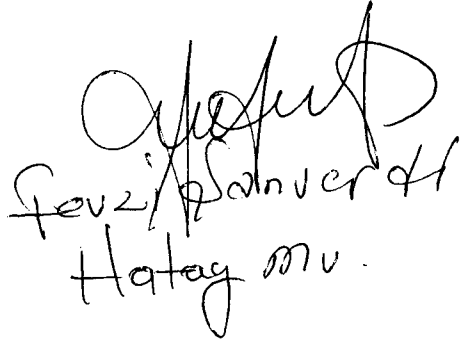 Fevzi Şanverdi
Hatay mv.